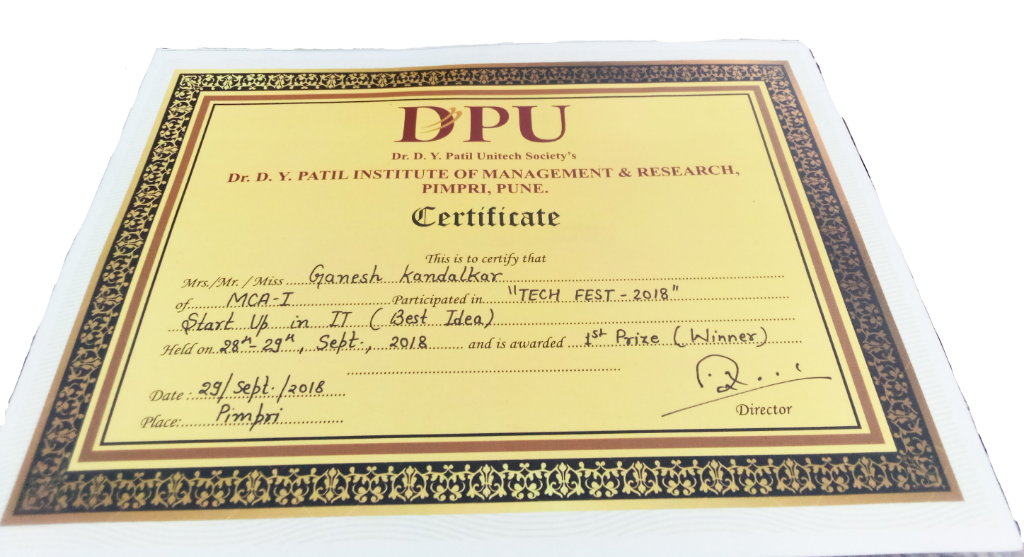 DPU
Dr. D. Y. Patil Unitech Society's
Dr. D. Y. PATIL INSTITUTE OF MANAGEMENT & RESEARCH,
PIMPRI, PUNE.
Certificate
This is to certify that
Mrs./Mr. / Miss Ganesh Kandalkar
of MCA-I Participated in "TECH FEST - 2018"
Start Up in IT ( Best Idea)
Held on 28th - 29th, Sept., 2018 and is awarded 1st Prize (Winner)
Date : 29/Sept./2018
Place: Pimpri
Director